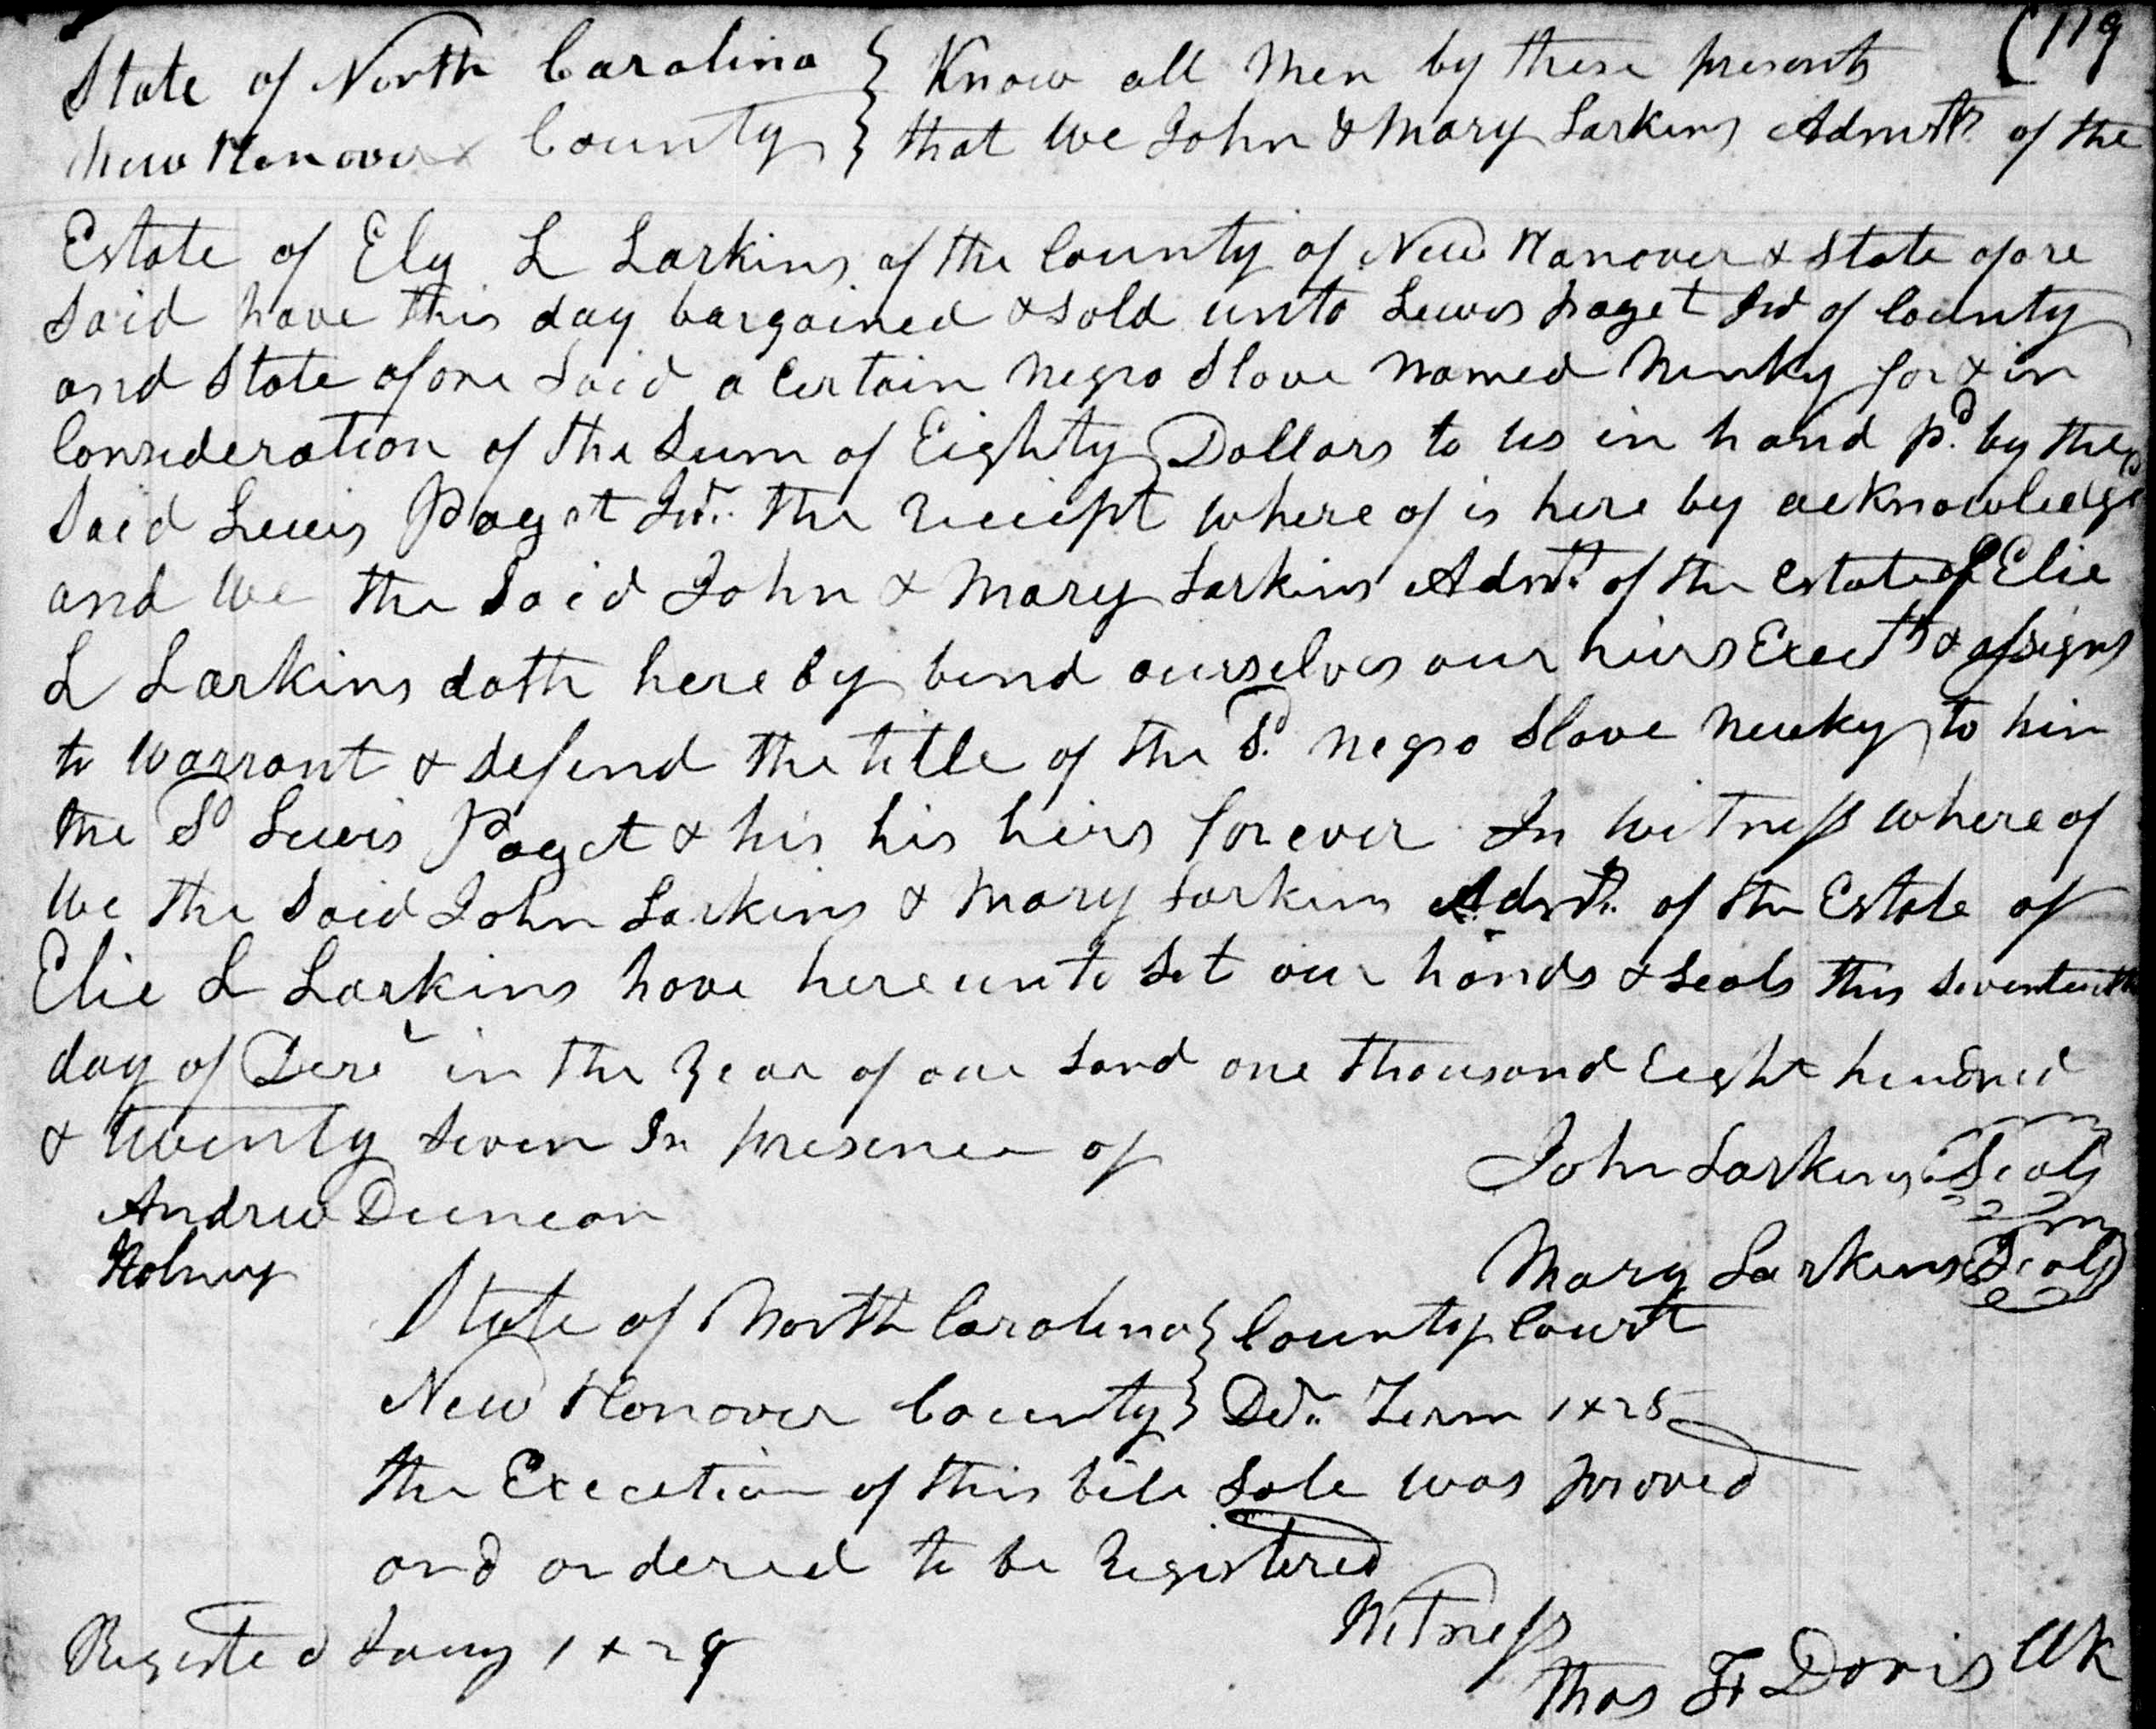 (119
State of North Carolina } Know all Men by these presents
New Hanover County } that we John & Mary Larkins Admrs. of the
Estate of Ely L Larkins of the County of New Hanover & State afore
Said have this day bargained & sold unto Lewis Paget Jr of County
and State afore Said a Certain Negro Slave named for & in
Consideration of the Sum of Eighty Dollars to us in hand pd. by the
Said Lewis Paget Jr. the receipt where of is here by acknowledged
and We the Said John & Mary Larkins Admr. of the Estate of Elie
L Larkins doth here by bind ourselves our hiers Exects & assigns
to warrant & defend the title of the Sd. negro Slave to him
the Sd Lewis Paget & his his hiers forever In Witness where of
We the Said John Larkins & Mary Larkins Admr. of the Estate of
Elie L Larkins have here unto Set our hands & Seals this Seventeenth
day of Decr in the Year of our Lord one thousand Eight hundred
& twenty Seven In presence of
John Larkins Seal
Andrew Duncan
Mary Larkins Seal
State of North Carolina } County Court
New Hanover County } Decr. Term 1828
the Execution of this bill Sale was proved
and ordered to be Registered
Witness
Registed Jany 1829
Thos F Davis Clk